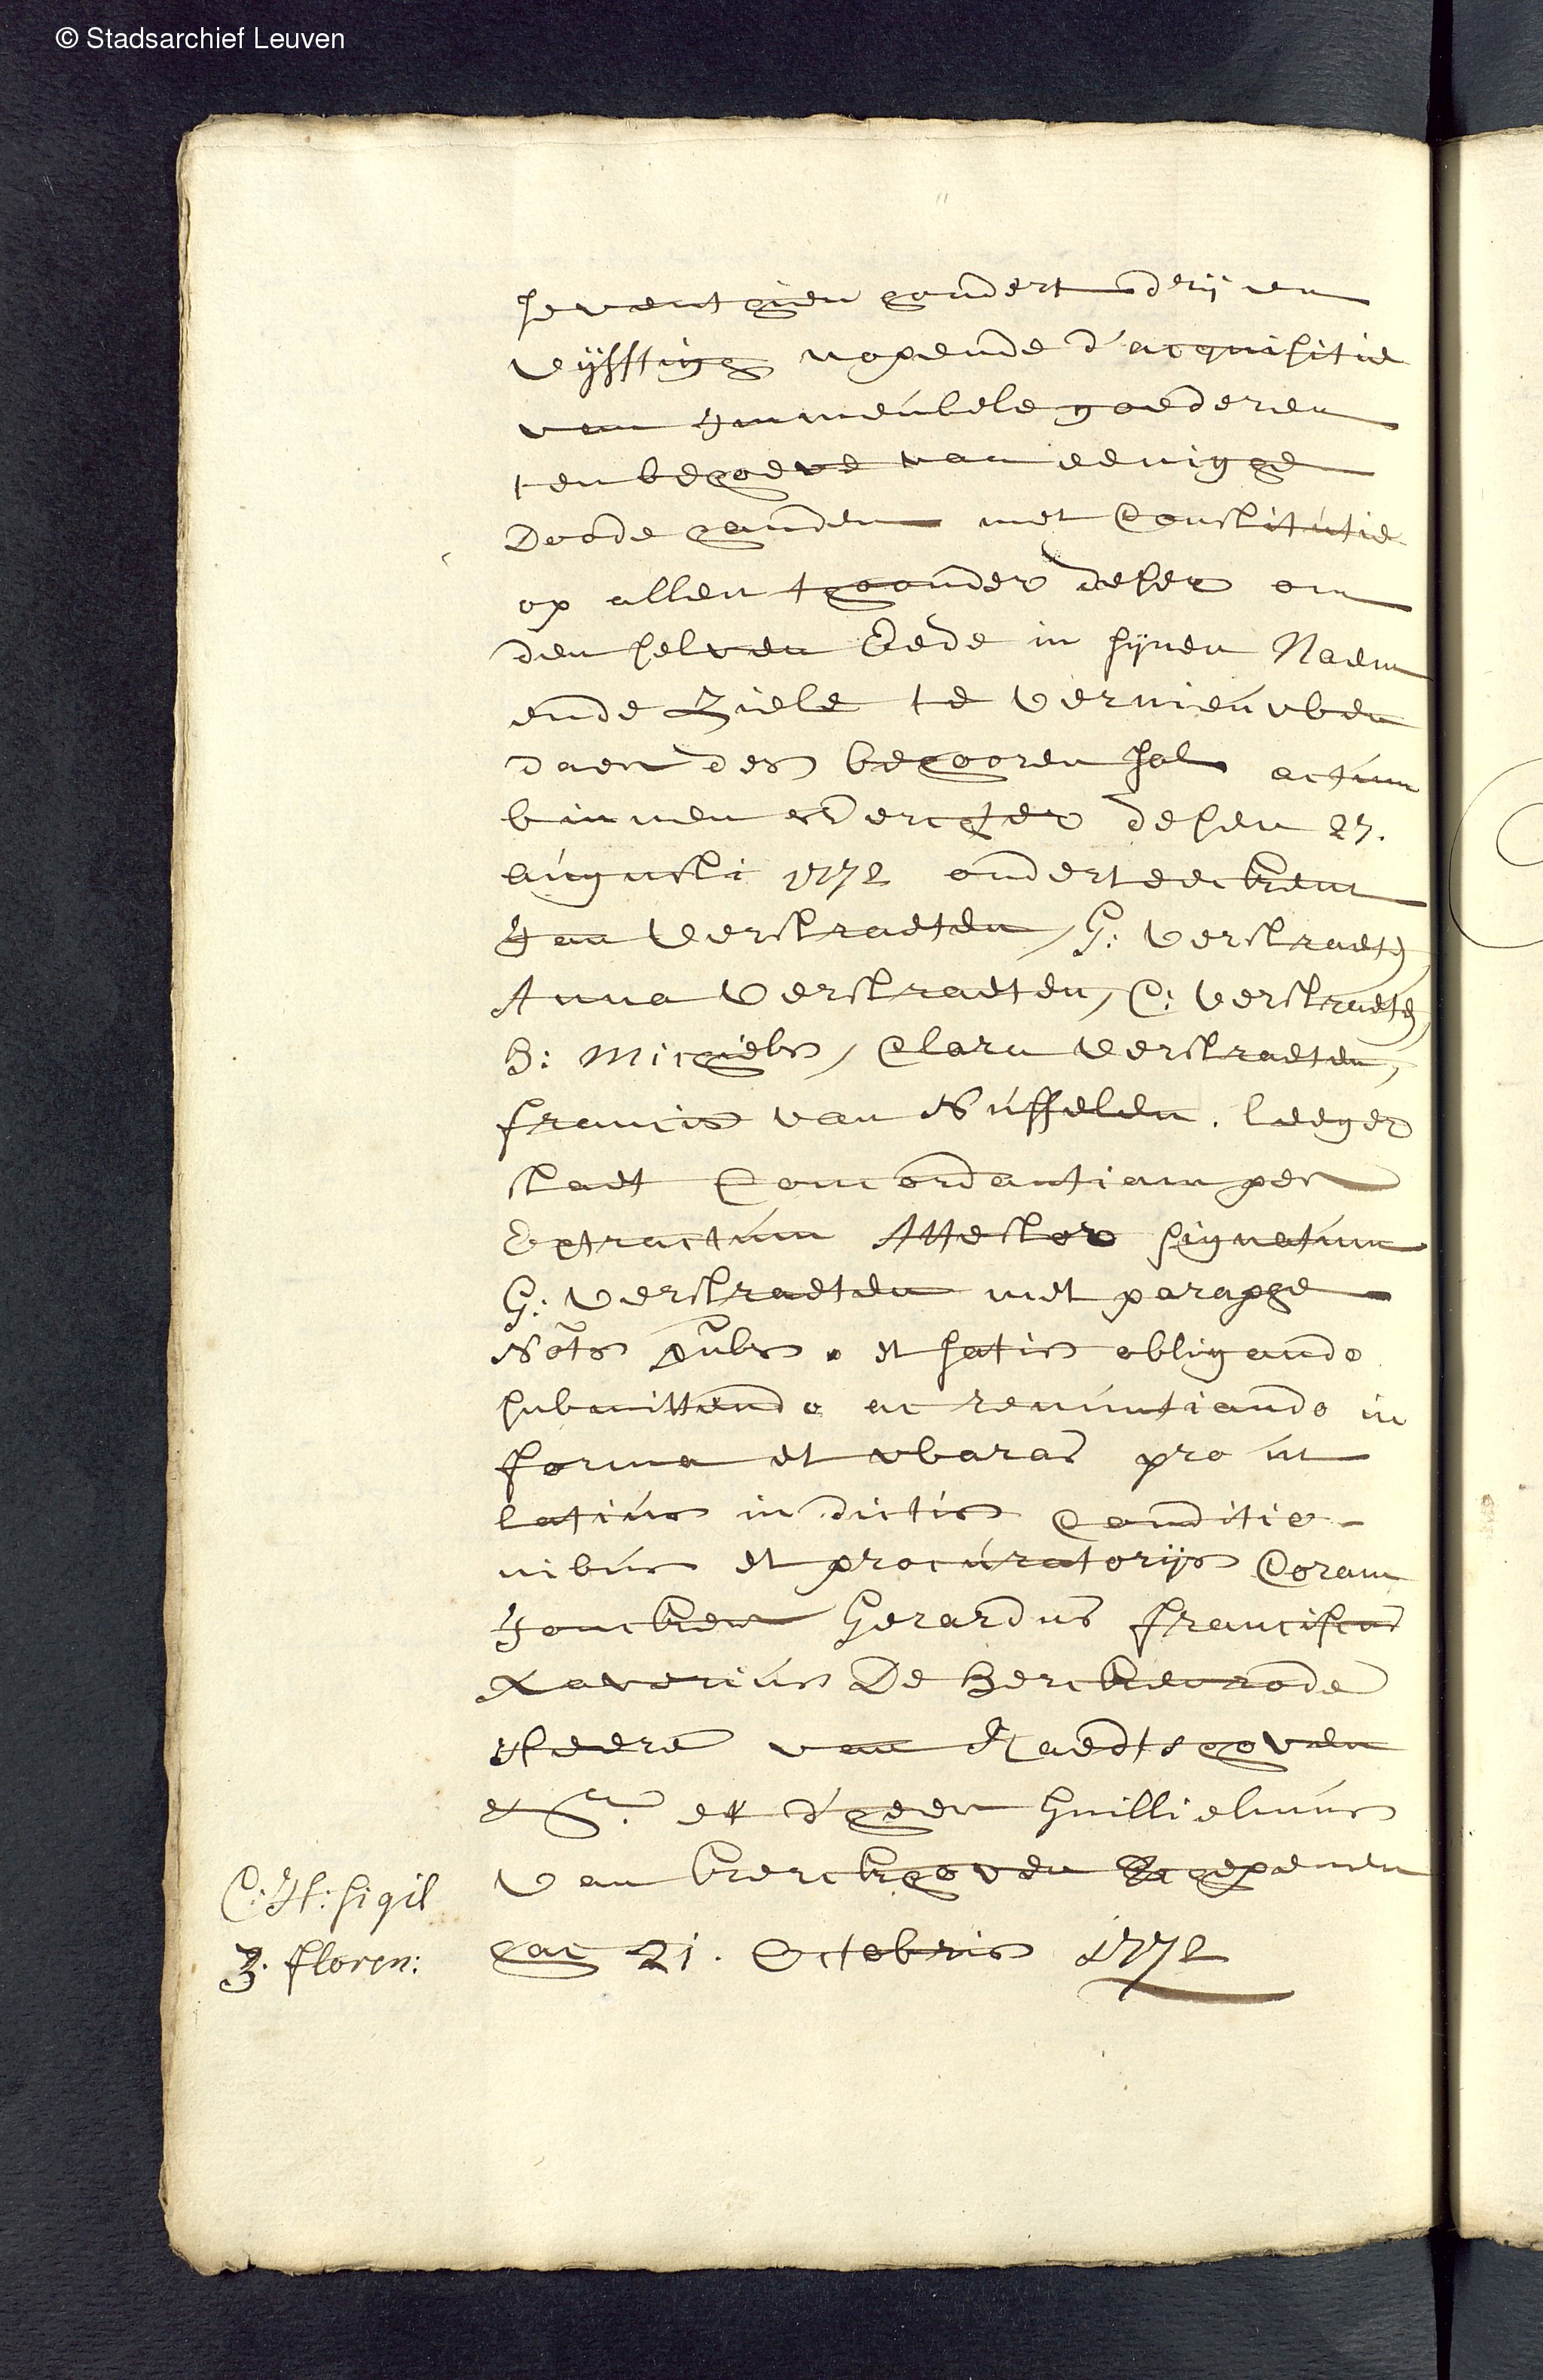 © Stadsarchief Leuven
seventhien hondert drij en
vijfftigh nopende d'acquisitie
van Immeubele goederen
ten behoeve van eenighe
Doode handen met Constitutie
op allen thoonder deser om
den selven Eede in sijnen Naem
ende Ziele te vernieuwen
daer des behooren sal actum
binnen Werchter desen 27.
augusti 1772 onderteeckent
Jan Verstraeten, G: Verstraeten,
Anna Verstraeten, C: Verstraeten,
B: Michiels, Clara Verstraeten,
francis van Nuffelen. leeger
staet Concordantiam per
Extractum Attestor signatum
G: Verstraeten met paraphe
Nots Pubs. et satis obligando
submittendo ac renuntiando in
forma et waras pro ut
latius in dictis Conditio-
nibus et procuratorijs Coram
Joncker Gerardus franciscus
Xaverius De Berckenrode
Heere van Raedtshoven
&a. et d'heer Guillielmus
Van kerckhoven Schepenen
hac 21. Octobris 1772
C: H: sigil
3. floren: